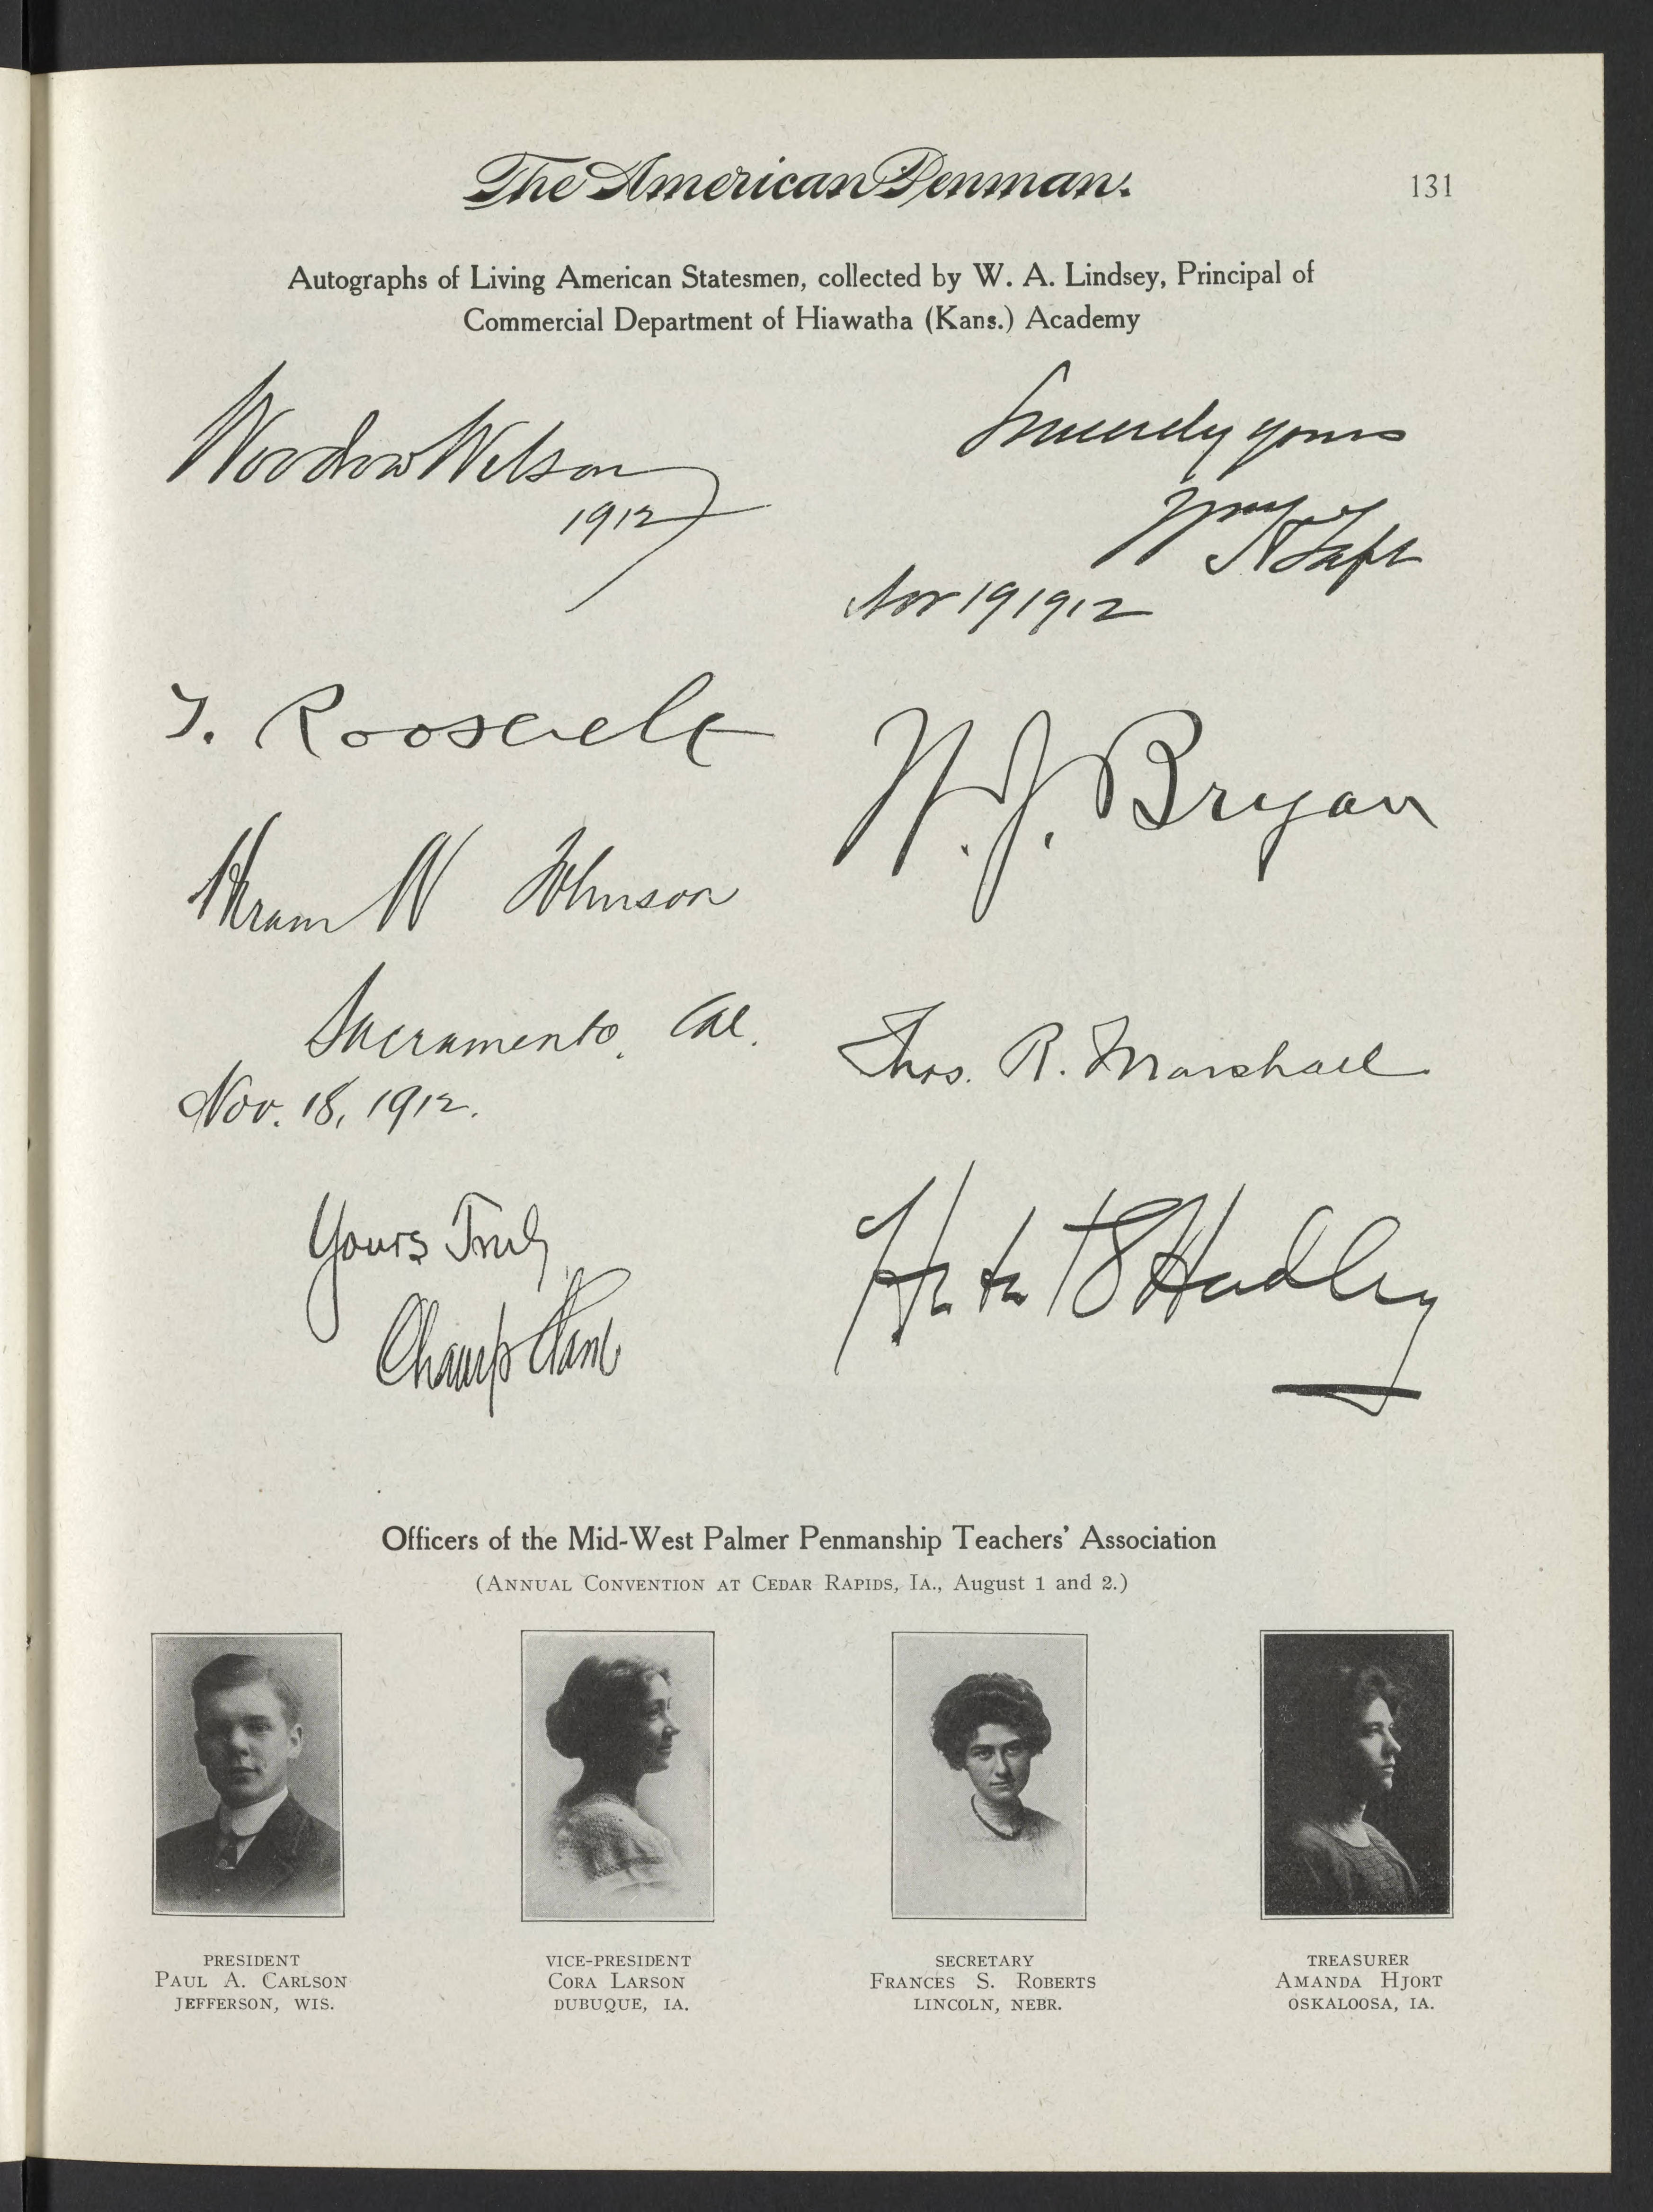 The American Penman.
131
Autographs of Living American Statesmen, collected by W. A. Lindsey, Principal of
Commercial Department of Hiawatha (Kans.) Academy
Woodrow Wilson
1912
Sincerely yours
Wm H Taft
Nov 19 1912
T. Roosevelt
W. J. Bryan
Hiram W Johnson
Sacramento, Cal.
Nov. 18, 1912.
Thos. R. Marshall
Yours Truly
Champ Clark
Herbert S Hadley
Officers of the Mid-West Palmer Penmanship Teachers' Association
(ANNUAL CONVENTION AT CEDAR RAPIDS, IA., August 1 and 2.)
PRESIDENT
PAUL A. CARLSON
JEFFERSON, WIS.
VICE-PRESIDENT
CORA LARSON
DUBUQUE, IA.
SECRETARY
FRANCES S. ROBERTS
LINCOLN, NEBR.
TREASURER
AMANDA HJORT
OSKALOOSA, IA.